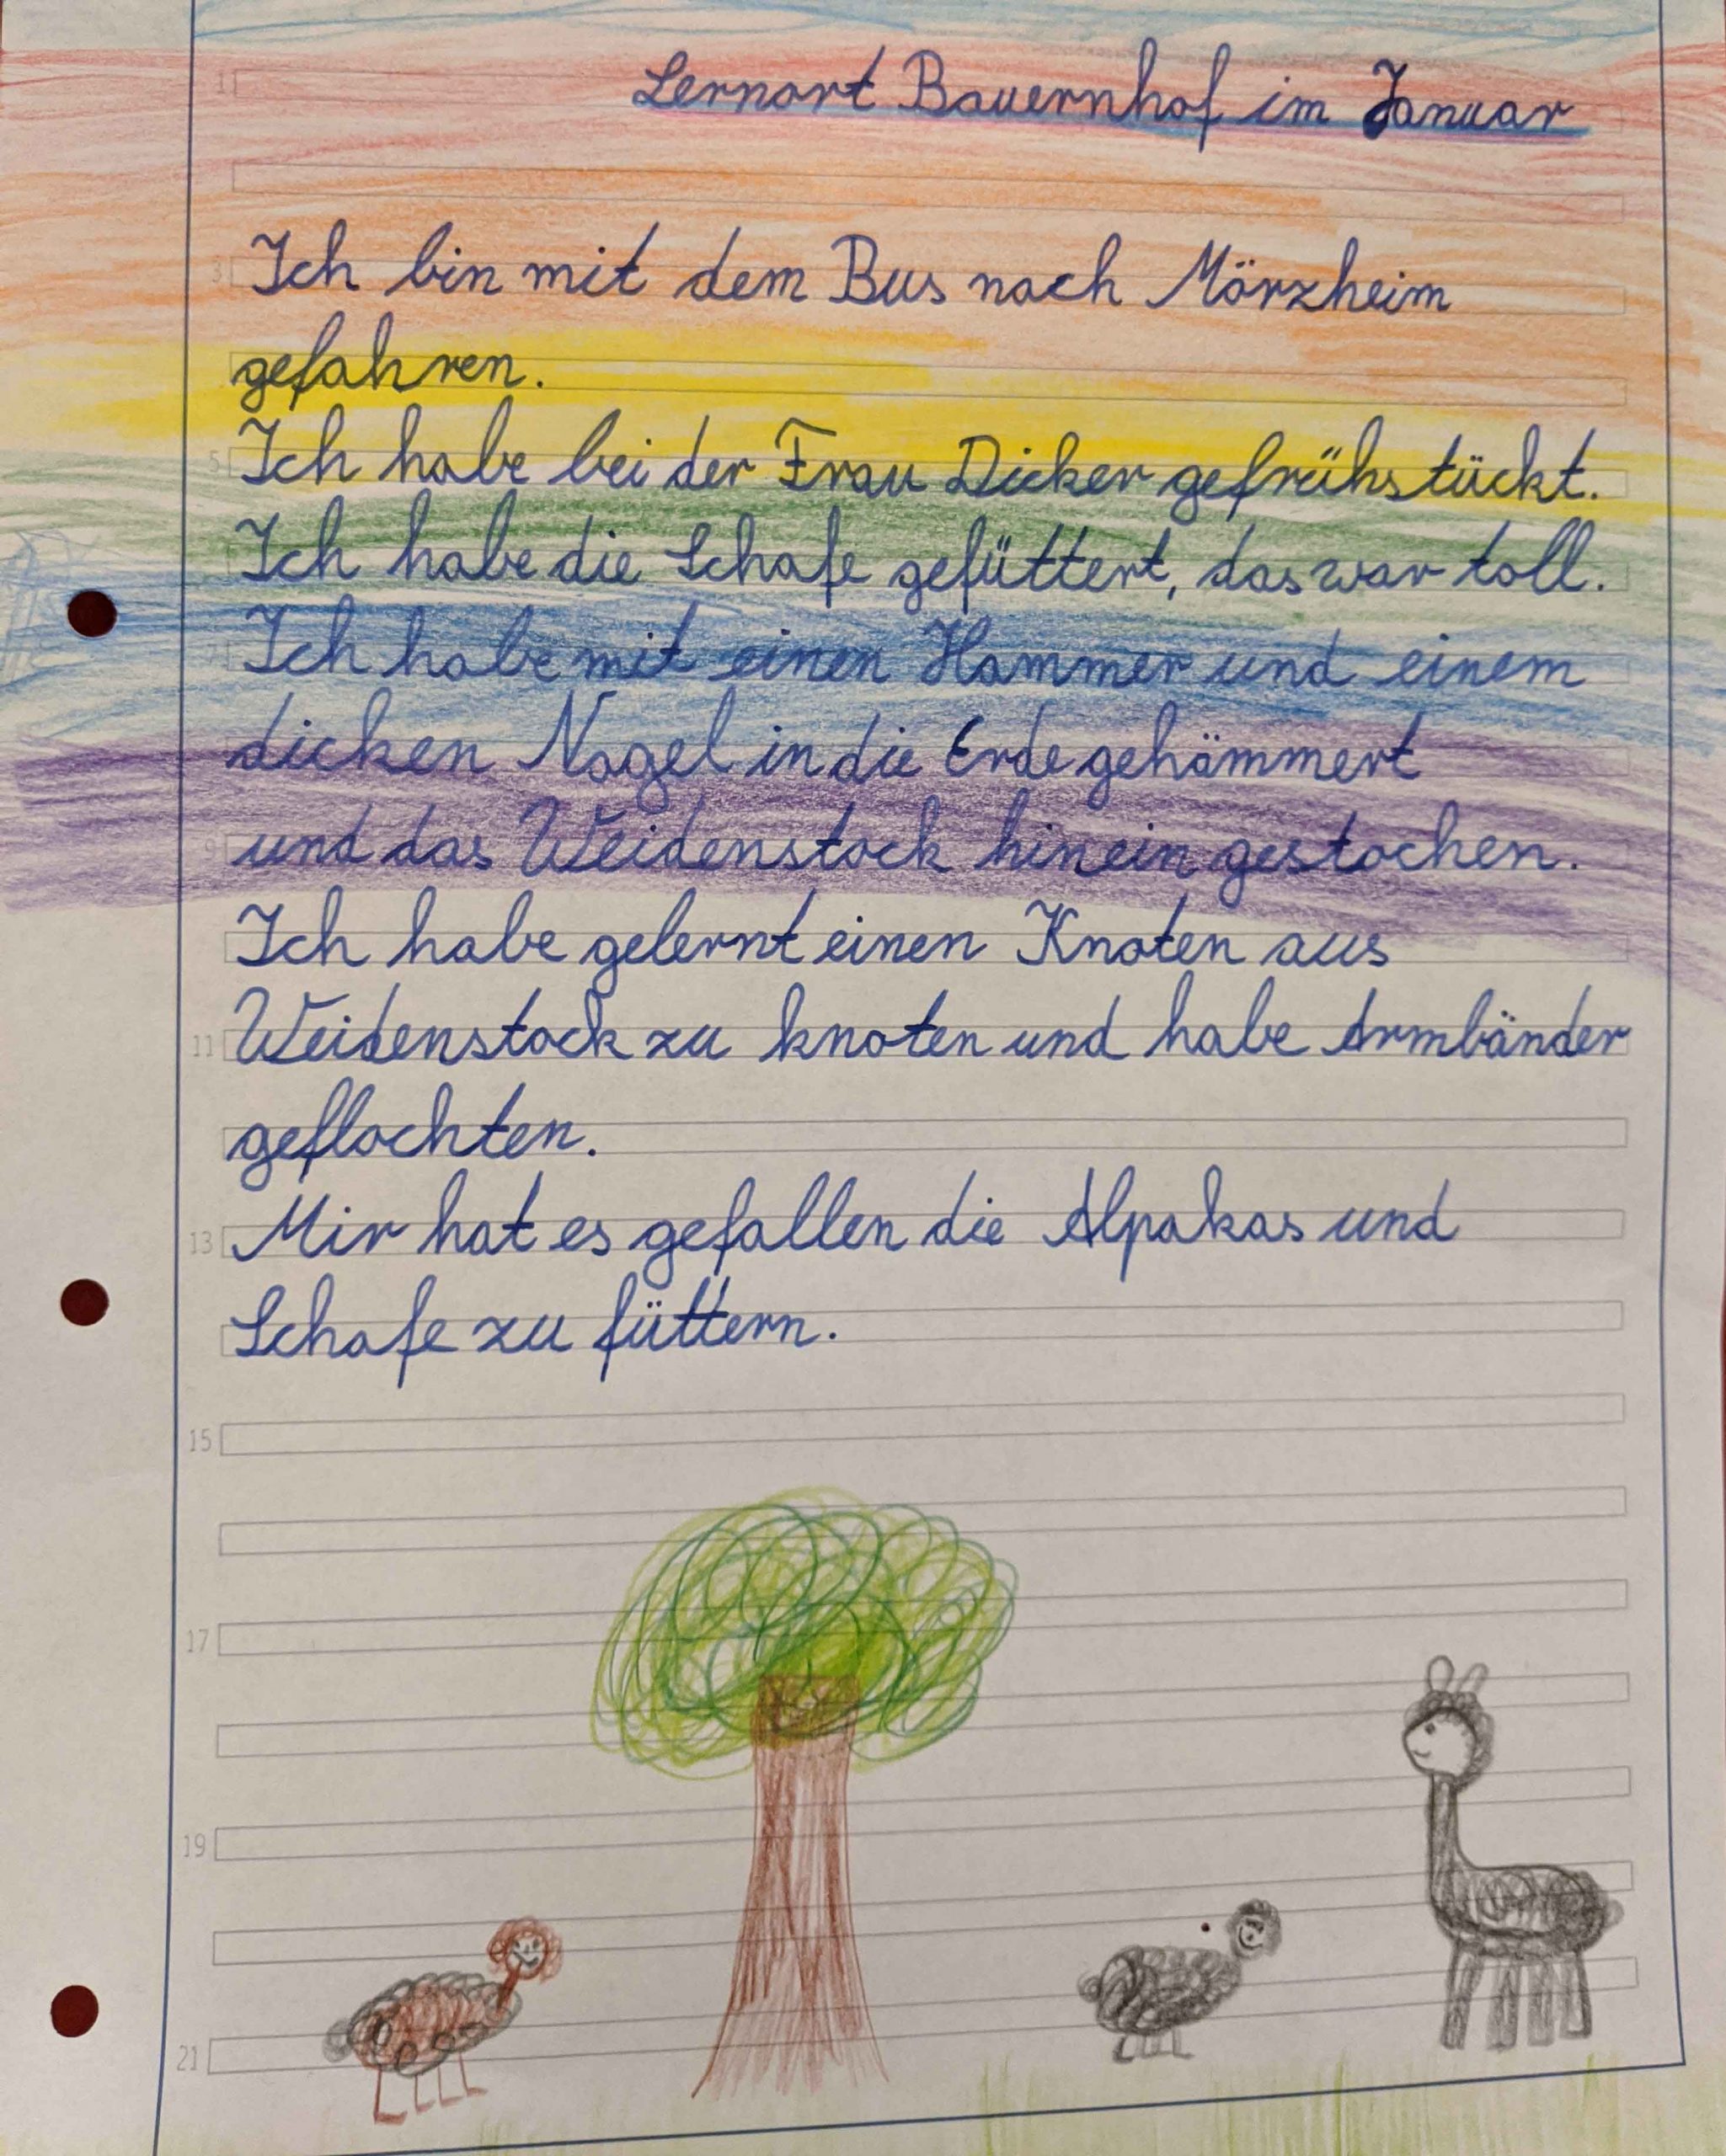 Lernort Bauernhof im Januar
Ich bin mit dem Bus nach Mörzheim
gefahren.
Ich habe bei der Frau Dicker gefrühstückt.
Ich habe die Schafe gefüttert, das war toll.
Ich habe mit einen Hammer und einem
dicken Nagel in die Erde gehämmert
und das Weidenstock hinein gestochen.
Ich habe gelernt einen Knoten aus
Weidenstock zu knoten und habe Armbänder
geflochten.
Mir hat es gefallen die Alpakas und
Schafe zu füttern.
1
3
5
7
9
11
13
15
17
19
21